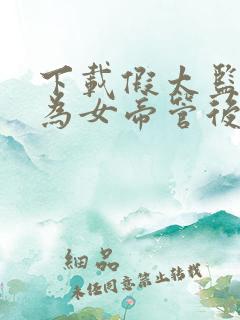 下載假太監
為女帝管後
細品
未任同意禁止轉載